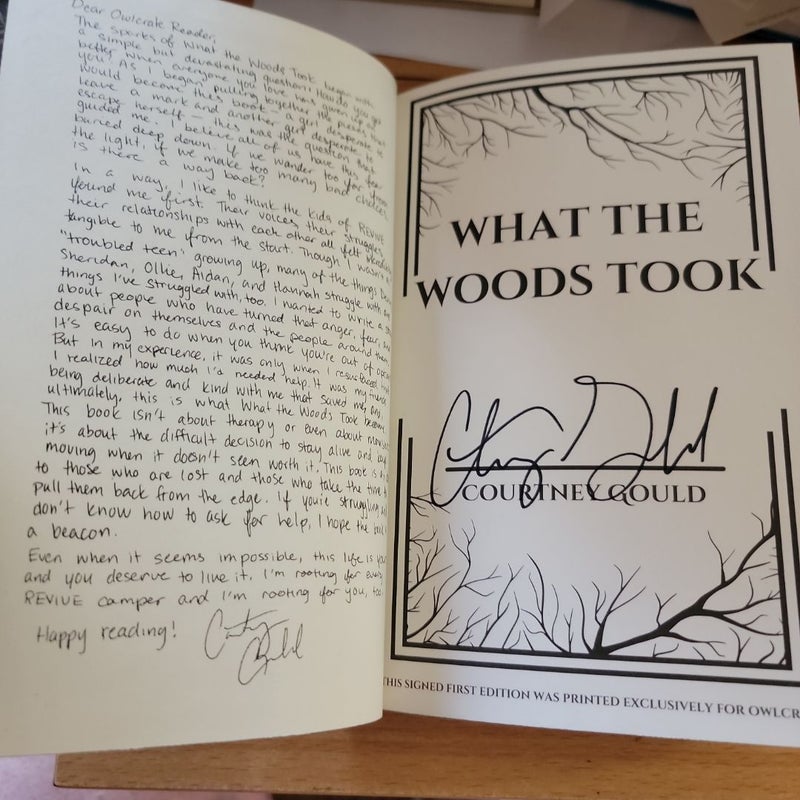 Dear Owlcrate Reader,
The sparks of What the Woods Took began with
a simple but devastating question: How do you get
better when everyone you love has given up on
you? As I began pulling together the pieces that
would become this book - a girl desperate to
leave a mark and another girl desperate to
escape herself - this was the question that
guided me. I believe all of us have this fear
buried deep down. If we wander too far from
the light, if we make too many bad choices,
is there a way back?
In a way, I like to think the kids of REVIVE
found me first. Their voices, their struggles,
their relationships with each other all felt
tangible to me from the start. Though I wasn't a
"troubled teen" growing up, many of the things Devin,
Sheridan, Ollie, Aidan, and Hannah struggle with are
things I've struggled with, too. I wanted to write a
about people who have turned that anger, fear, and
despair on themselves and the people around them.
It's easy to do when you think you're out of
But in my experience, it was only when I resurfaced that
I realized how much I'd needed help. It was my friends
being deliberate and kind with me that saved me, and,
ultimately, this is what What the Woods Took became.
This book isn't about therapy or even about monsters
it's about the difficult decision to stay alive and keep
moving when it doesn't seem worth it. This book is
to those who are lost and those who take the time to
pull them back from the edge. If you're struggling and
don't know how to ask for help, I hope the book is
a beacon.
Even when it seems impossible, this life is
and you deserve to live it. I'm rooting for every
REVIVE camper and I'm rooting for you, too.
Happy reading!
Courtney Gould
WHAT THE
WOODS TOOK
Courtney Gould
COURTNEY GOULD
THIS SIGNED FIRST EDITION WAS PRINTED EXCLUSIVELY FOR OWLCR